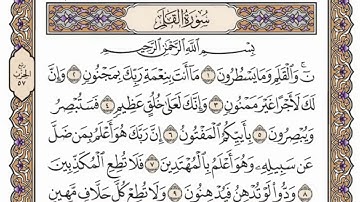 سُورَةُ القَلَمِ
بِسْمِ اللَّهِ الرَّحْمَٰنِ الرَّحِيمِ
نٓ ۚ وَالْقَلَمِ وَمَا يَسْطُرُونَ ۝١ مَا أَنتَ بِنِعْمَةِ رَبِّكَ بِمَجْنُونٍ ۝٢ وَإِنَّ
لَكَ لَأَجْرًا غَيْرَ مَمْنُونٍ ۝٣ وَإِنَّكَ لَعَلَىٰ خُلُقٍ عَظِيمٍ ۝٤ فَسَتُبْصِرُ
وَيُبْصِرُونَ ۝٥ بِأَييِّكُمُ الْمَفْتُونُ ۝٦ إِنَّ رَبَّكَ هُوَ أَعْلَمُ بِمَن ضَلَّ
عَن سَبِيلِهِ وَهُوَ أَعْلَمُ بِالْمُهْتَدِينَ ۝٧ فَلَا تُطِعِ الْمُكَذِّبِينَ
۝٨ وَدُّوا لَوْ تُدْهِنُ فَيُدْهِنُونَ ۝٩ وَلَا تُطِعْ كُلَّ حَلَّافٍ مَّهِينٍ
ربع
الحزب
٥٧